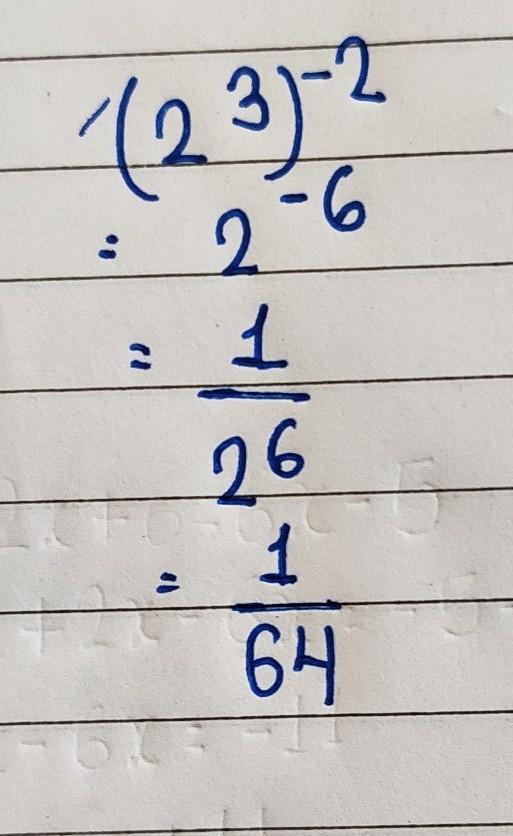 (2³)⁻²
= 2⁻⁶
= 1/2⁶
= 1/64